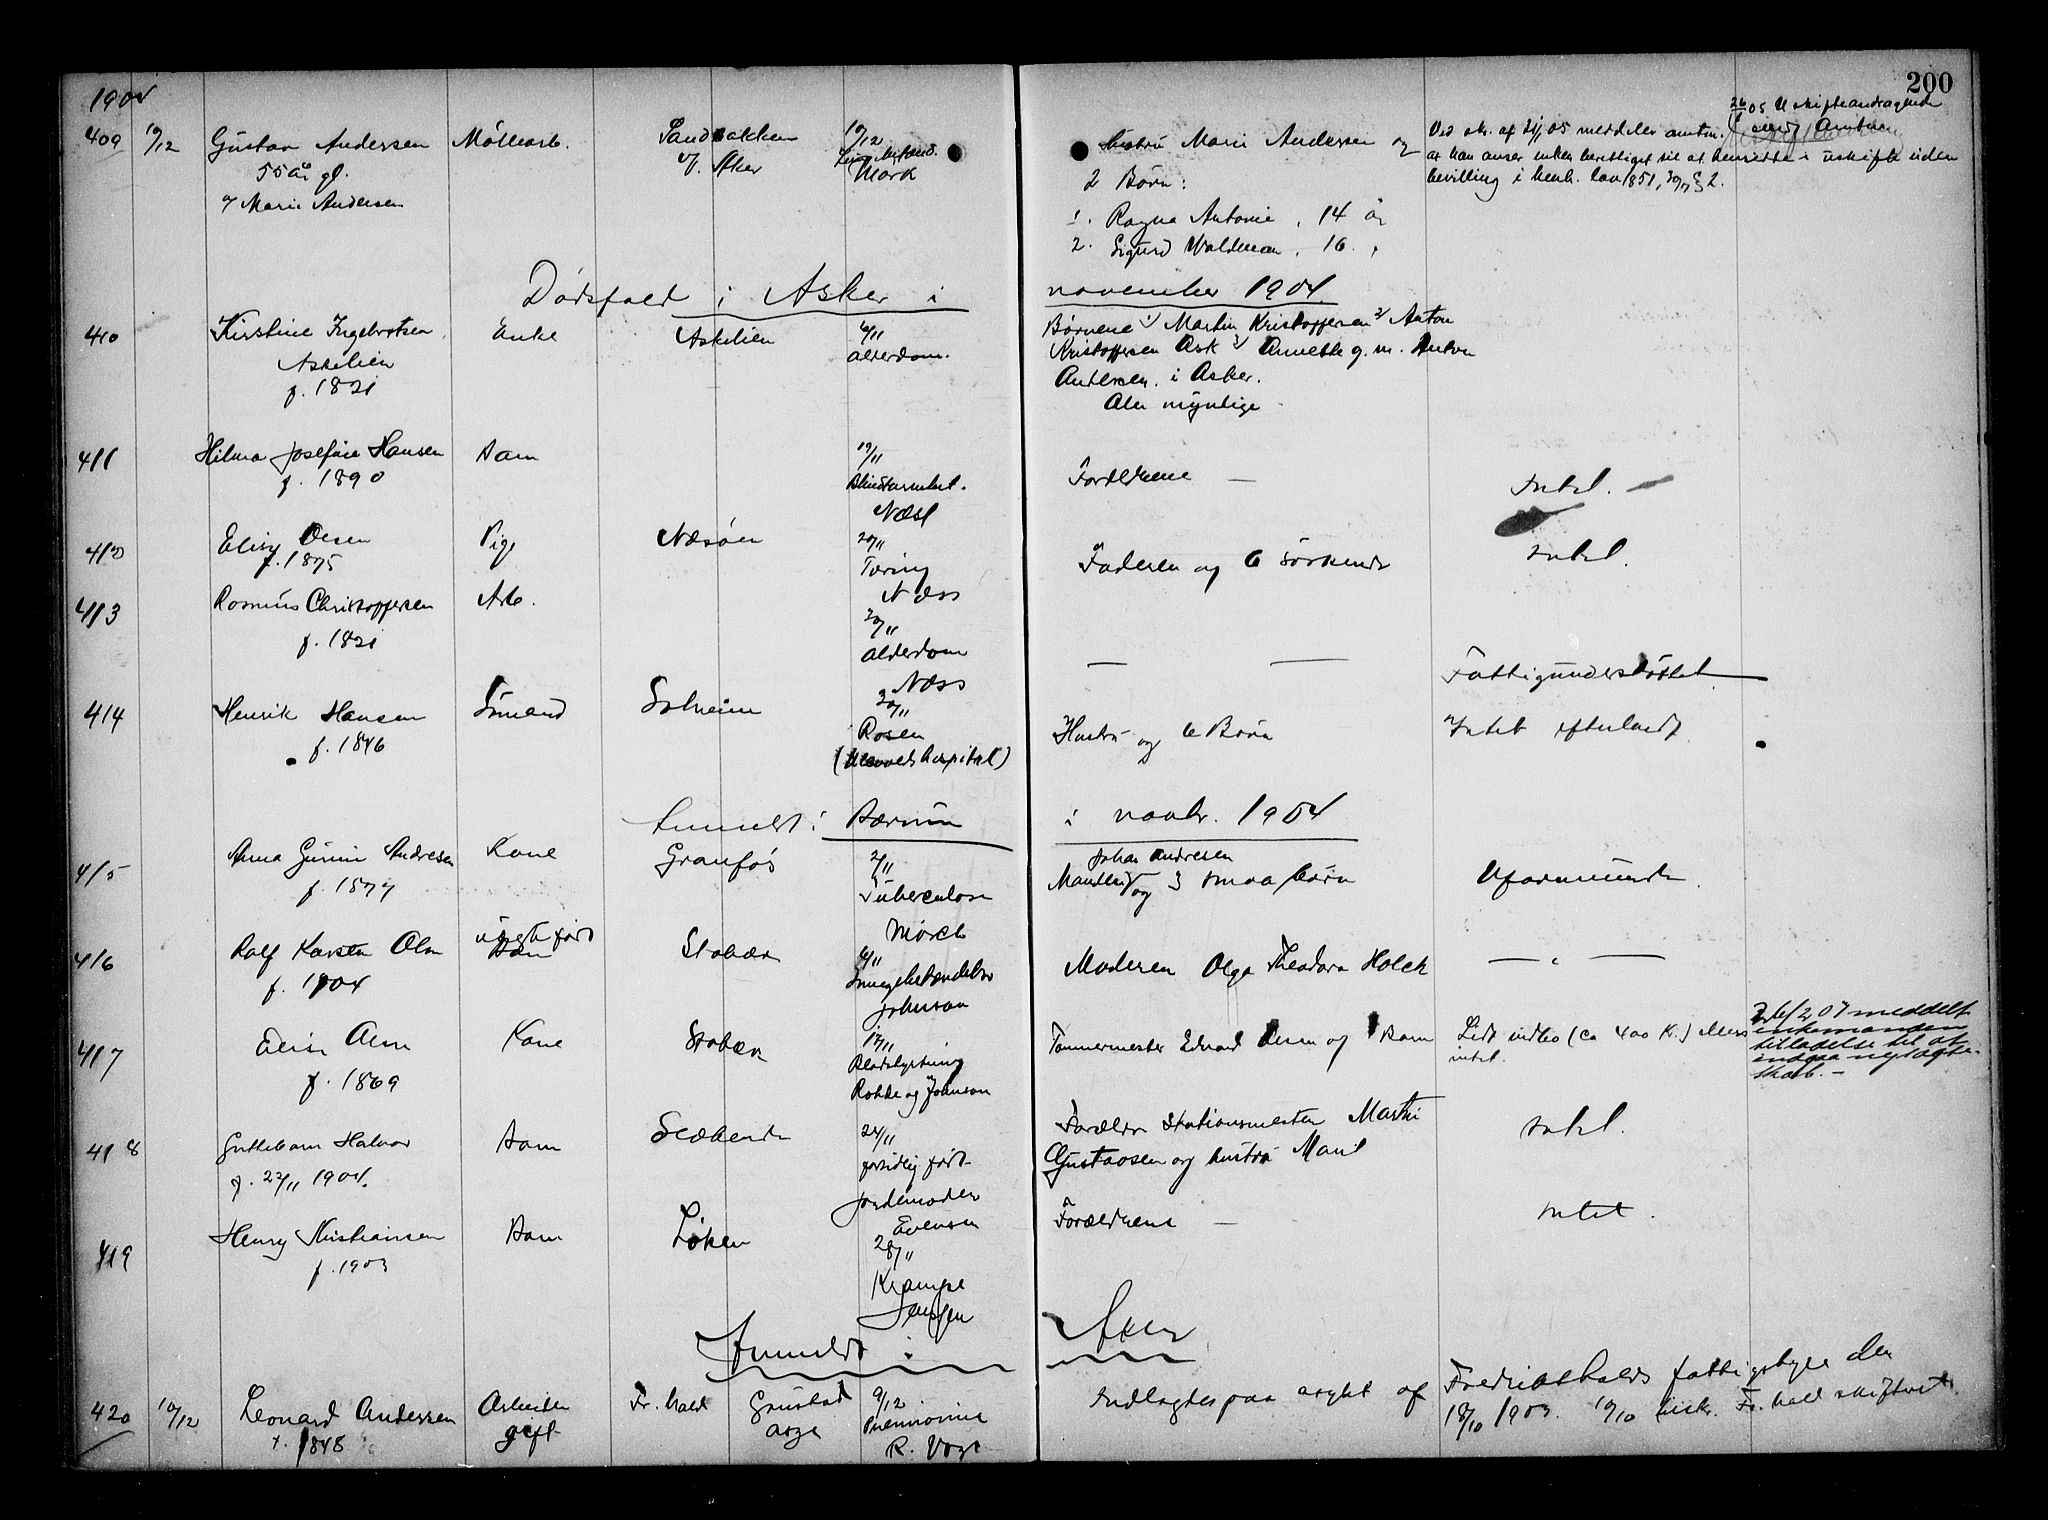 200
1904
409 10/12 Gustav Andersen Møllearb. Sandbakken 10/12 Hustru Marie Andersen og Ved skr. af 24/1 05 meddeler amtm.
55 år gl. v/ Aker Mørk 2 Børn: at han anser enken berettiget til at hensidde i uskifte uden
g/ Marie Andersen bevilling i henh. lov 1851, 30/7 § 2.
1. Ragna Antonie, 14 år
2. Sigurd Waldemar, 16 "
Dødsfald i Asker i november 1904
410 Kirstine Ingebretsen Enke Askelien 6/11 Børnene 1/ Martin Kristoffersen 2/ Anton
Askelien Alderdom. Kristoffersen Ask 3/ Annette g. m. Anton
f. 1821 Andersen i Asker.
Alle myndige
411 Hilma Josefine Hansen Barn 19/11 Forældrene — Intet. —
f. 1890 Blindtarmbet.
Næss
412 Elise Olsen Pige Næsøen 20/11 Faderen og 6 søskende Intet.
f. 1875 Tæring
Næss
413 Rasmus Christoffersen Arb. 20/11 — — Fattigunderstøttet
f. 1821 Alderdom
Næss
414 Henrik Hansen Sømand Solheim 30/11 Hustru og 6 Børn Intet efterladt
f. 1846 Rosen
(Ullevaals hospital)
Anmeldt i Bærum i novbr. 1904
415 Anna Gurine Andresen Kone Granfos 2/11 Johan Andresen
f. 1877 Tuberculose Manden og 3 smaa børn Uformuende
Mørch
416 Rolf Karsten Olm uægte født Barn Stabæk 6/11 Moderen Olga Theodora Holck — " —
f. 1904 Lungebetændelse
Johnson
417 Elise Alm Kone Stabæk 17/11 Tømmermester Edvard Olsen og 1 Barn Lidt indbo (ca 400 Kr.) ellers intet. 26/2 07 meddelt
f. 1869 Blodstyrtning enkemanden
Rohde og Johnson tilladelse til at
indgaa nyt ægte-
skab. —
418 Guttebarn Halvor Barn Slæbende 24/11 Forældre Stationsmester Martin Intet.
f. 22/11 1904. fortidlig født Gustavsen og hustru Marit
Jordemoder
Evensen
419 Henry Kristiansen Barn Løken 28/11 Forældrene — Intet.
f. 1903 Krampe
Jensen
Anmeldt i Aker
420 10/12 Leonard Andersen Arbeider Fr.hald Gaustad 9/12 Indlagdes paa asylet af Fredrikshalds fattigstyre den
f. 1848 gift asyl Pneumonia 18/10 1903. Fr.hald skifteret.
R. Vogt